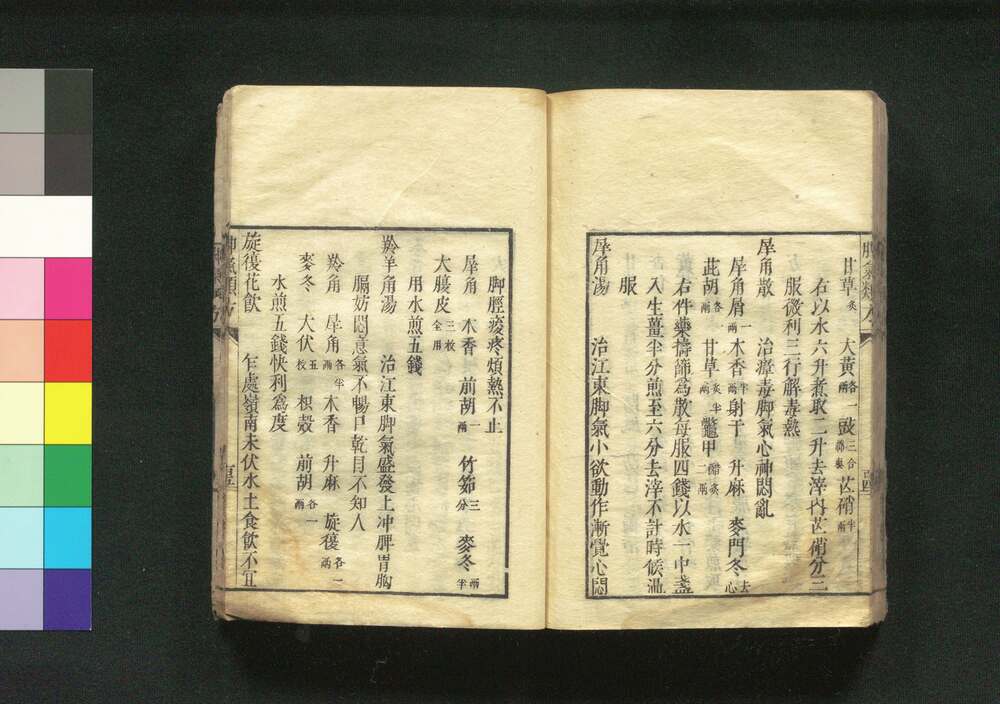 甘草炙 大黃各一兩 豉三合 芒硝半兩
右以水六升煮取二升去滓内芒硝分三
服微利三行解毒熱
犀角散 治瘴毒脚氣心神悶亂
犀角屑一兩 木香半兩 射干 升麻 麥門冬去心
茈胡各一兩 甘草炙半兩 鼈甲醋炙二兩
右件藥擣篩為散每服四錢以水一中盞
入生薑半分煎至六分去滓不計時候溫
服
犀角湯 治江東脚氣小欲動作漸覺心悶
脚脛痠疼煩熱不止
犀角 木香 前胡一兩 竹筎三分 麥冬兩半
大腹皮三枚全用
用水煎五錢
羚羊角湯 治江東脚氣盛發上冲脾胃胸
膈妨悶意氣不暢口乾目不知人
羚角 犀角各半兩 木香 升麻 旋覆各一兩
麥冬 大伏五枚 枳殼 前胡各一兩
水煎五錢快利為度
旋復花飲 乍處嶺南未伏水土食飲不宜